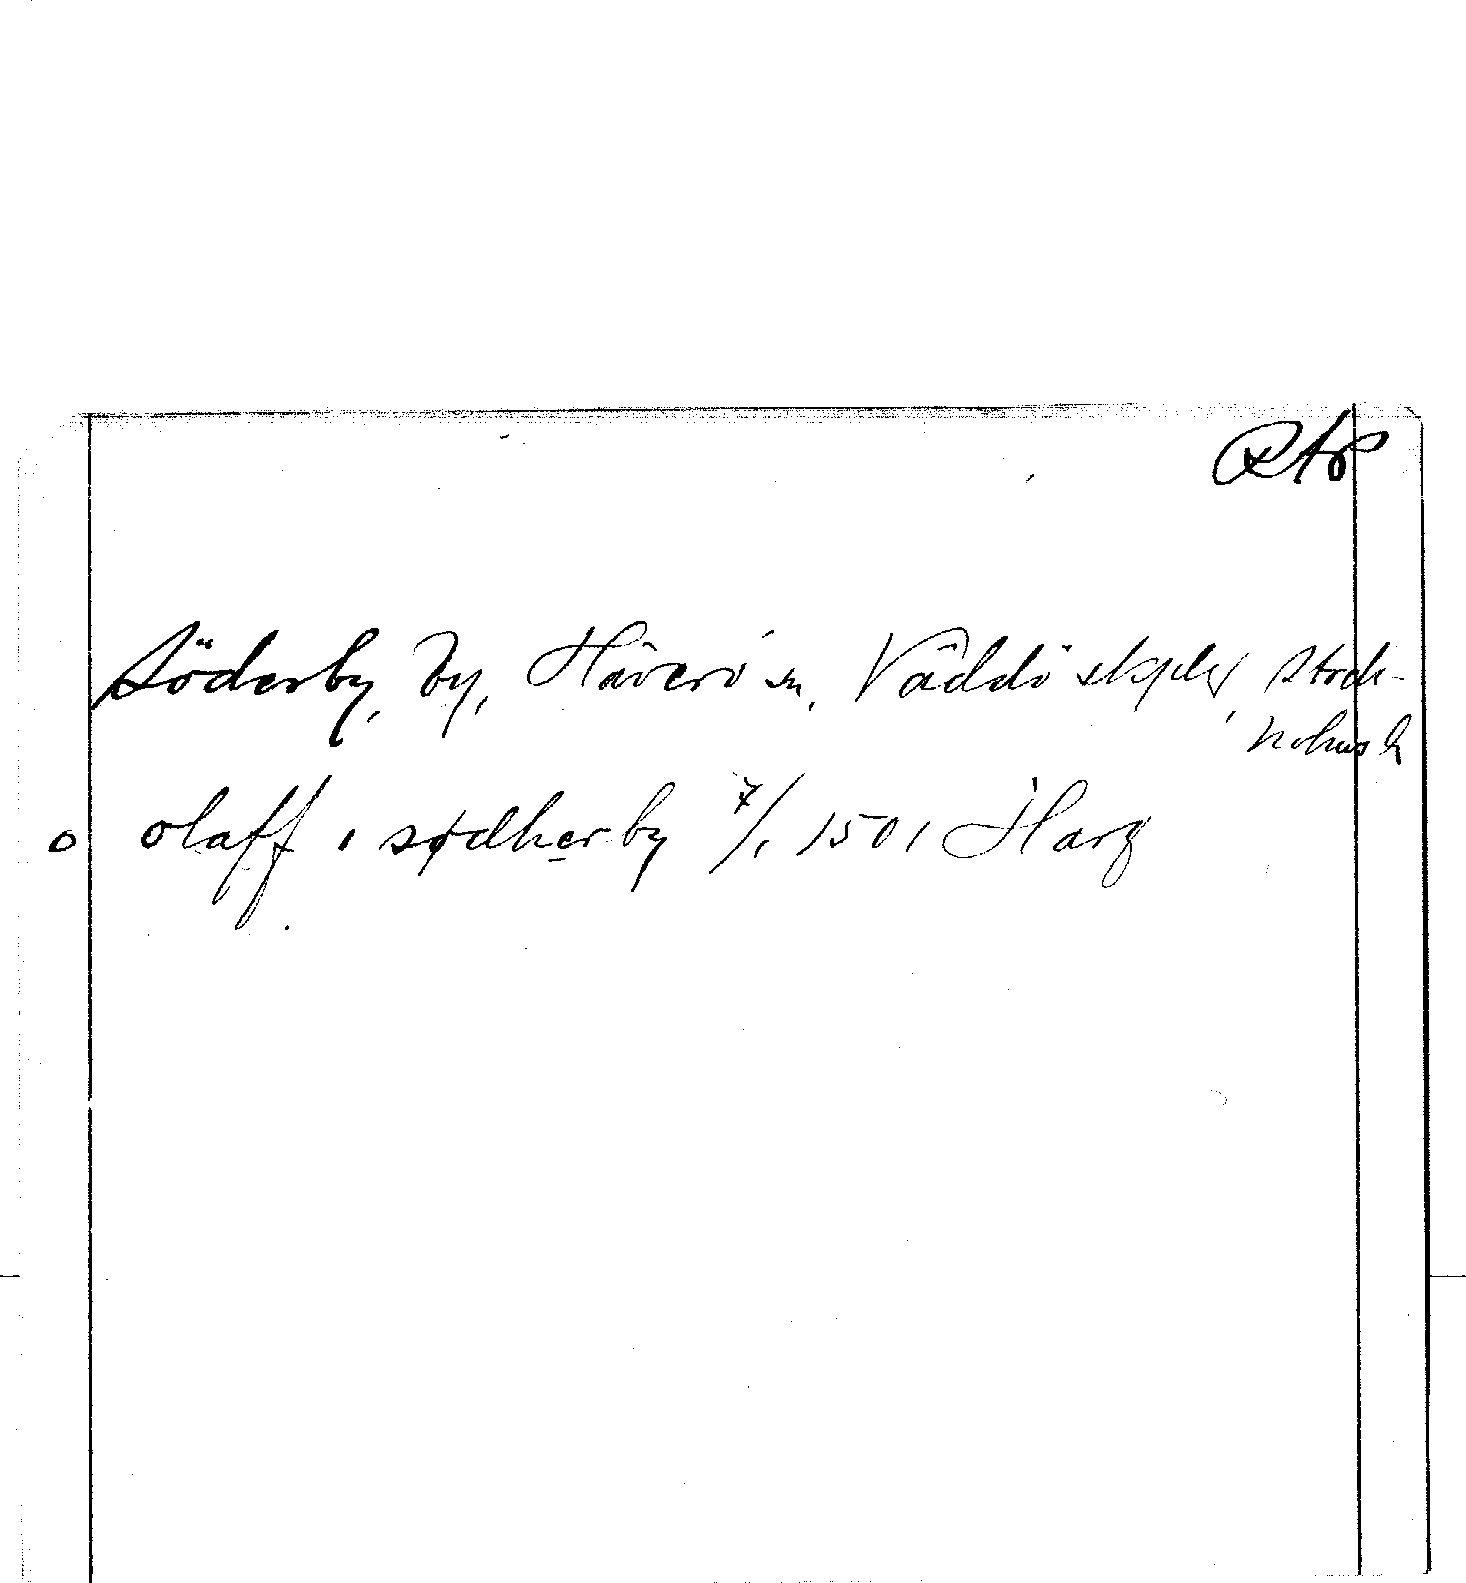 Söderby, by, Häverö sn, Väddö skplg, Stock-
holms l
o olaff i sødherby 7/1 1501 Harg